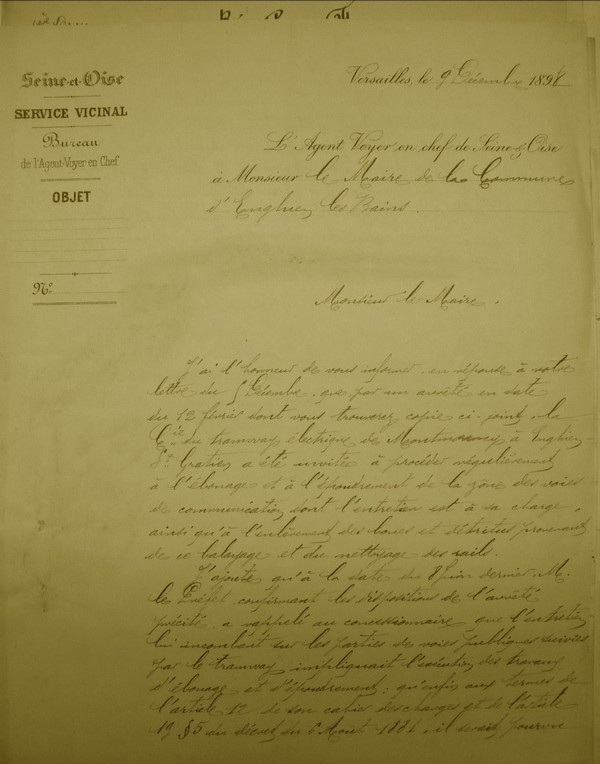 Seine-et-Oise
SERVICE VICINAL
Bureau
de l'Agent-Voyer en Chef
OBJET
N.º
Versailles, le 9 Décembre 189
L'Agent Voyer en chef de Seine & Oise
à Monsieur le Maire de la Commune
d'Enghien les Bains.
Monsieur le Maire,
J'ai l'honneur de vous informer, en réponse à votre
lettre du 5 Décembre, que par un arrêté en date
du 12 février dont vous trouverez copie ci-joint, la
Cie du tramway électrique de Montmorency à Enghien
St Gratien a été invitée à procéder régulièrement
à l'ébouage et à l'époudrement de la zône des voies
de communication dont l'entretien est à sa charge,
ainsi qu'à l'enlèvement des boues et détritus provenant
de ce balayage et du nettoyage des rails.
J'ajoute qu'à la date du 8 Juin dernier M.
le Préfet, confirmant les dispositions de l'arrêté
précité, a rappelé au concessionnaire que l'entretien
lui incombant sur les parties de voies publiques suivies
par le tramway impliquait l'exécution des travaux
d'ébouage et d'époudrement; qu'enfin aux termes de
l'article 12 de son cahier des charges et de l'article
19 §5 du décret du 6 Août 1881, il serait pourvu